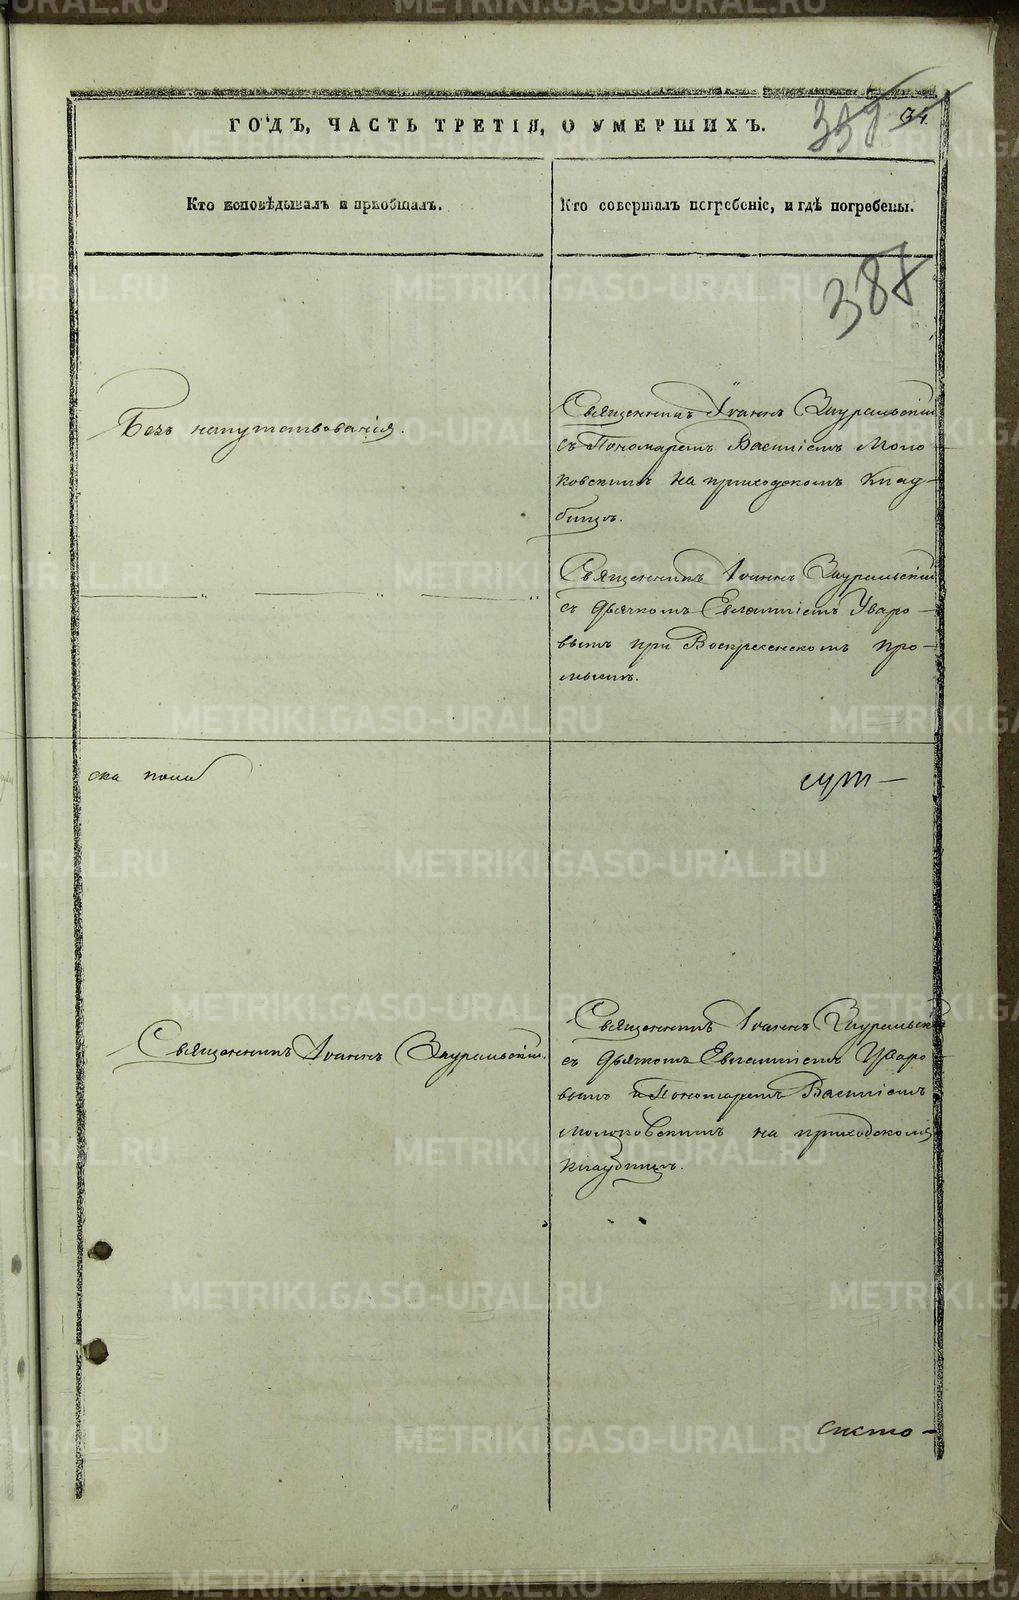 METRIKI.GASO-URAL.RU
ГОДЪ, ЧАСТЬ ТРЕТІЯ, О УМЕРШИХЪ.
34.
Кто исповѣдывалъ и пріобщалъ.
Кто совершалъ погребеніе, и гдѣ погребены.
388
Безъ напутствованія.
Священникъ Іоаннъ Зауральскій
съ Пономаремъ Василіемъ Моло-
ковскимъ на приходскомъ клад-
бищѣ.
Священникъ Іоаннъ Зауральскій
съ дьячкомъ Евлампіемъ Уваро-
вымъ при Воскресенскомъ про-
мыслѣ.
ска пола
Священникъ Іоаннъ Зауральскій.
Священникъ Іоаннъ Зауральскій
съ дьячкомъ Евлампіемъ Уваро-
вымъ и Пономаремъ Василіемъ
Молоковскимъ на приходскомъ
кладбищѣ.